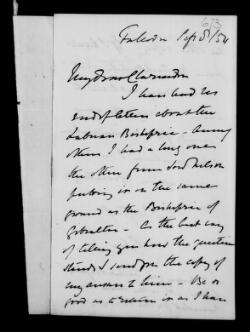 673
Sept 8/54
My dear Clarendon
I have had no
end of letters about the
Labuan Bishopric - Among
them I had a long one
the other from Lord Nelson
putting it on the same
ground as the Bishopric of
Gibraltar - As the best way
of telling you how the question
stands I send you the copy of
my answer to him - Be so
good as to return it as I have